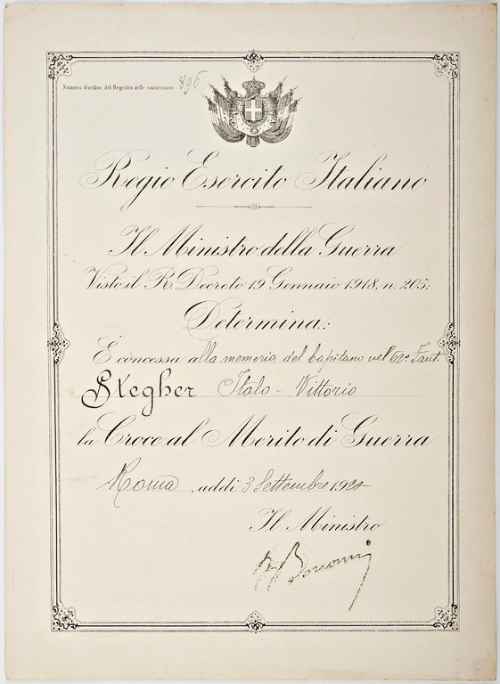 Numero d'ordine del Registro delle concessioni 896
Regio Esercito Italiano
Il Ministro della Guerra
Visto il R. Decreto 19 Gennaio 1918, n. 205;
Determina:
È concessa alla memoria del Capitano nel 62° Fant.
Stegher Italo-Vittorio
la Croce al Merito di Guerra
Roma, addì 3 Settembre
Il Ministro